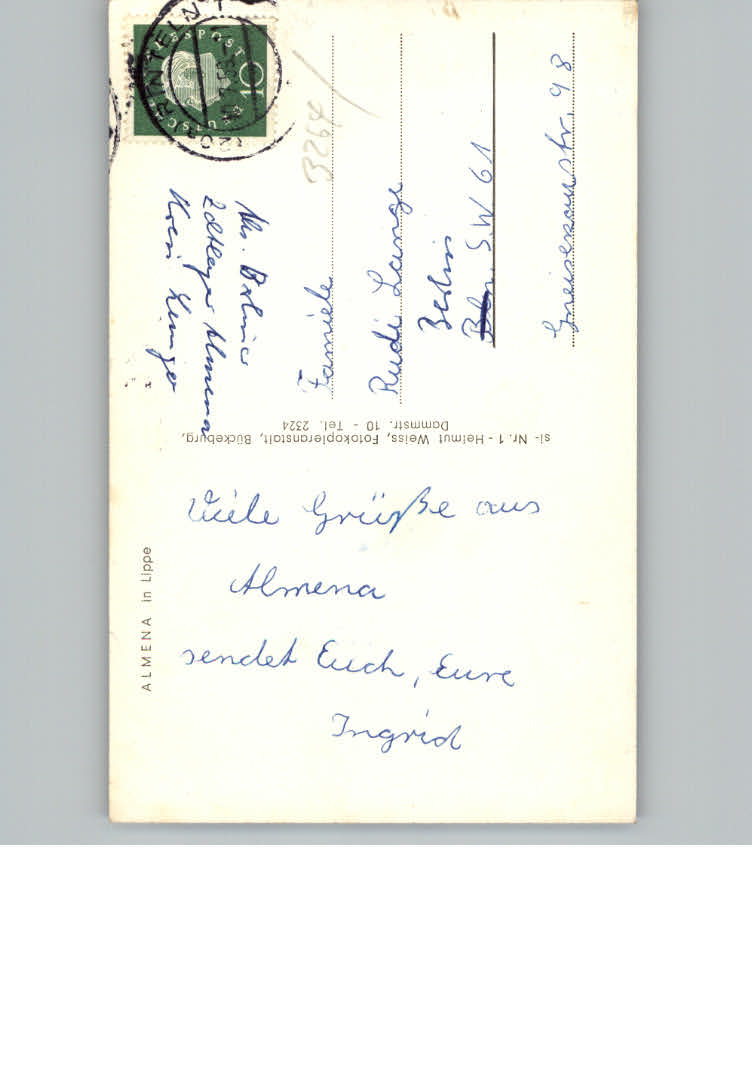 Viele Grüße aus
Almena
sendet Euch, Eure
Ingrid
ALMENA in Lippe
si- Nr. 1 - Helmut Weiss, Fotokopieranstalt, Bückeburg,
Dammstr. 10 - Tel. 2324
Abs. Berliner
Zeltlager Almena
Kreis Lemgo
3264
Familie
Rudi Lange
Berlin
Bln. S.W 61
Gneisenaustr. 98
RINTELN
DEUTSCHE BUNDESPOST
10